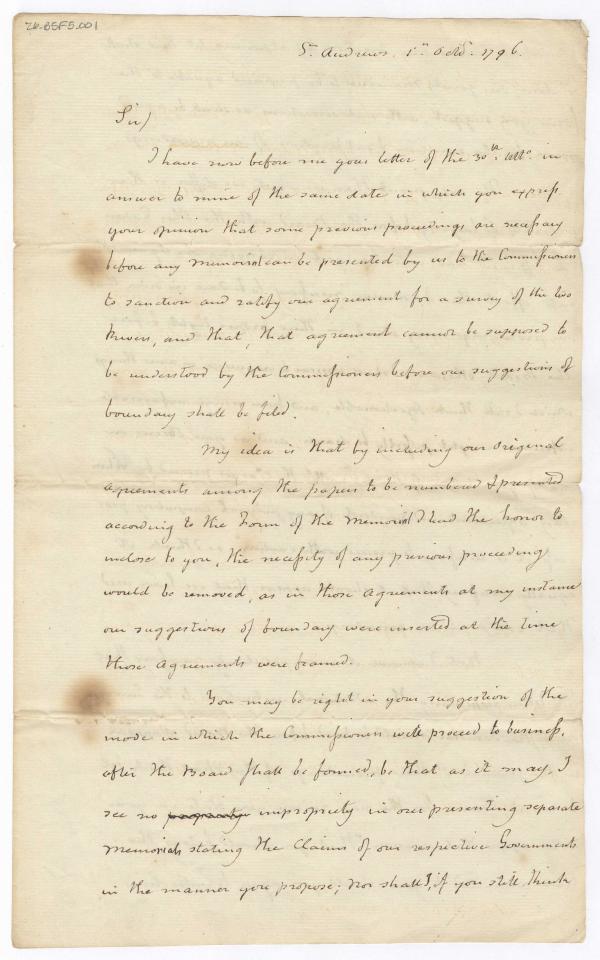 26-B5F5.001
St. Andrews. 1st Octr. 1796.
Sir/
I have now before me your letter of the 30th. Ulto. in
answer to mine of the same date in which you express
your opinion that some previous proceedings are necessary
before any memorial can be presented by us to the Commissioners
to sanction and ratify our agreement for a survey of the two
Rivers, and that, that agreement cannot be supposed to
be understood by the Commissioners before our suggestions of
boundary shall be filed.
My idea is that by including our Original
agreements among the papers to be numbered & presented
according to the Form of the Memorial I had the honor to
inclose to you, the necessity of any previous proceeding
would be removed, as in those Agreements at my instance
our suggestions of boundary were inserted at the time
those Agreements were framed.
You may be right in your suggestion of the
mode in which the Commissioners will proceed to business,
after the Board shall be formed, be that as it may, I
see no impropriety in our presenting separate
Memorials stating the Claims of our respective Governments
in the manner you propose; nor shall I, if you still think